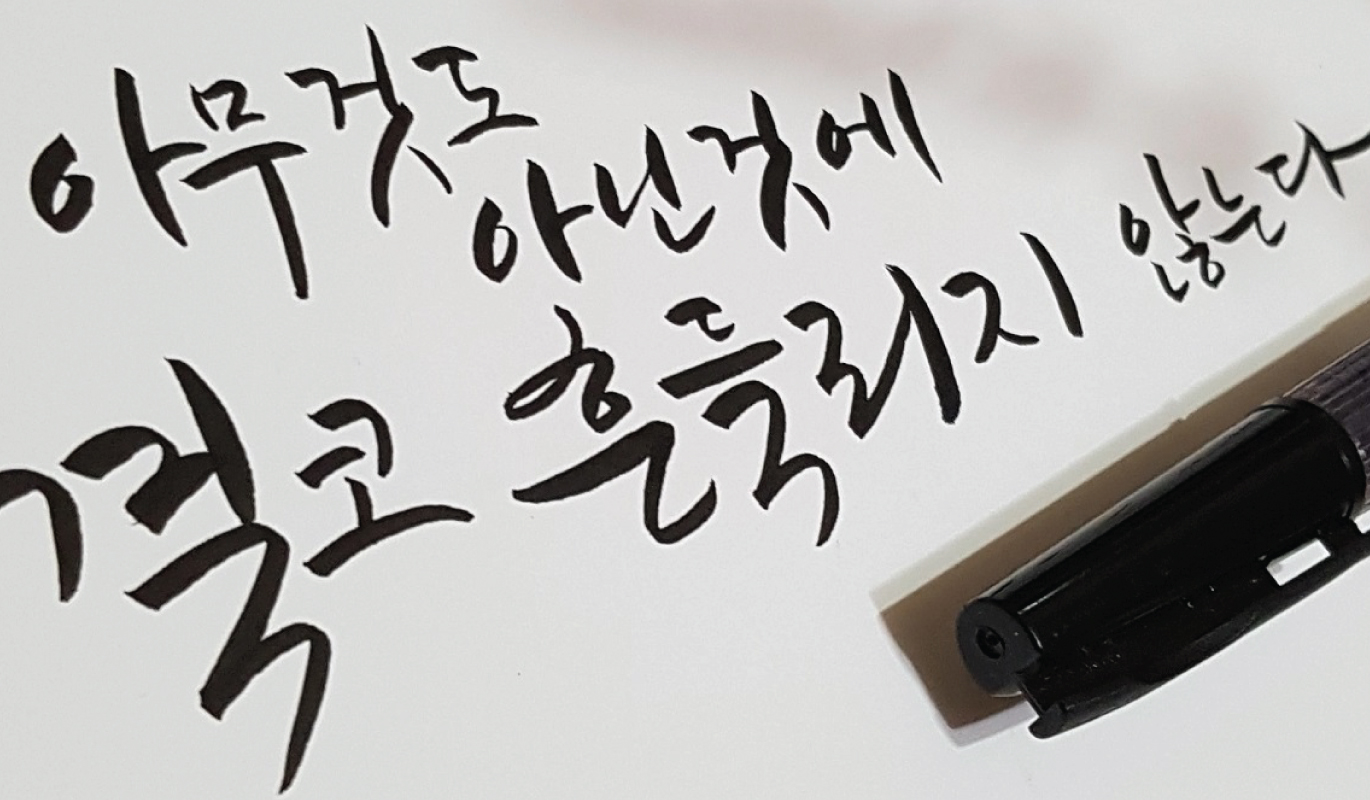 아무것도 아닌것에
결코 흔들리지 않는다